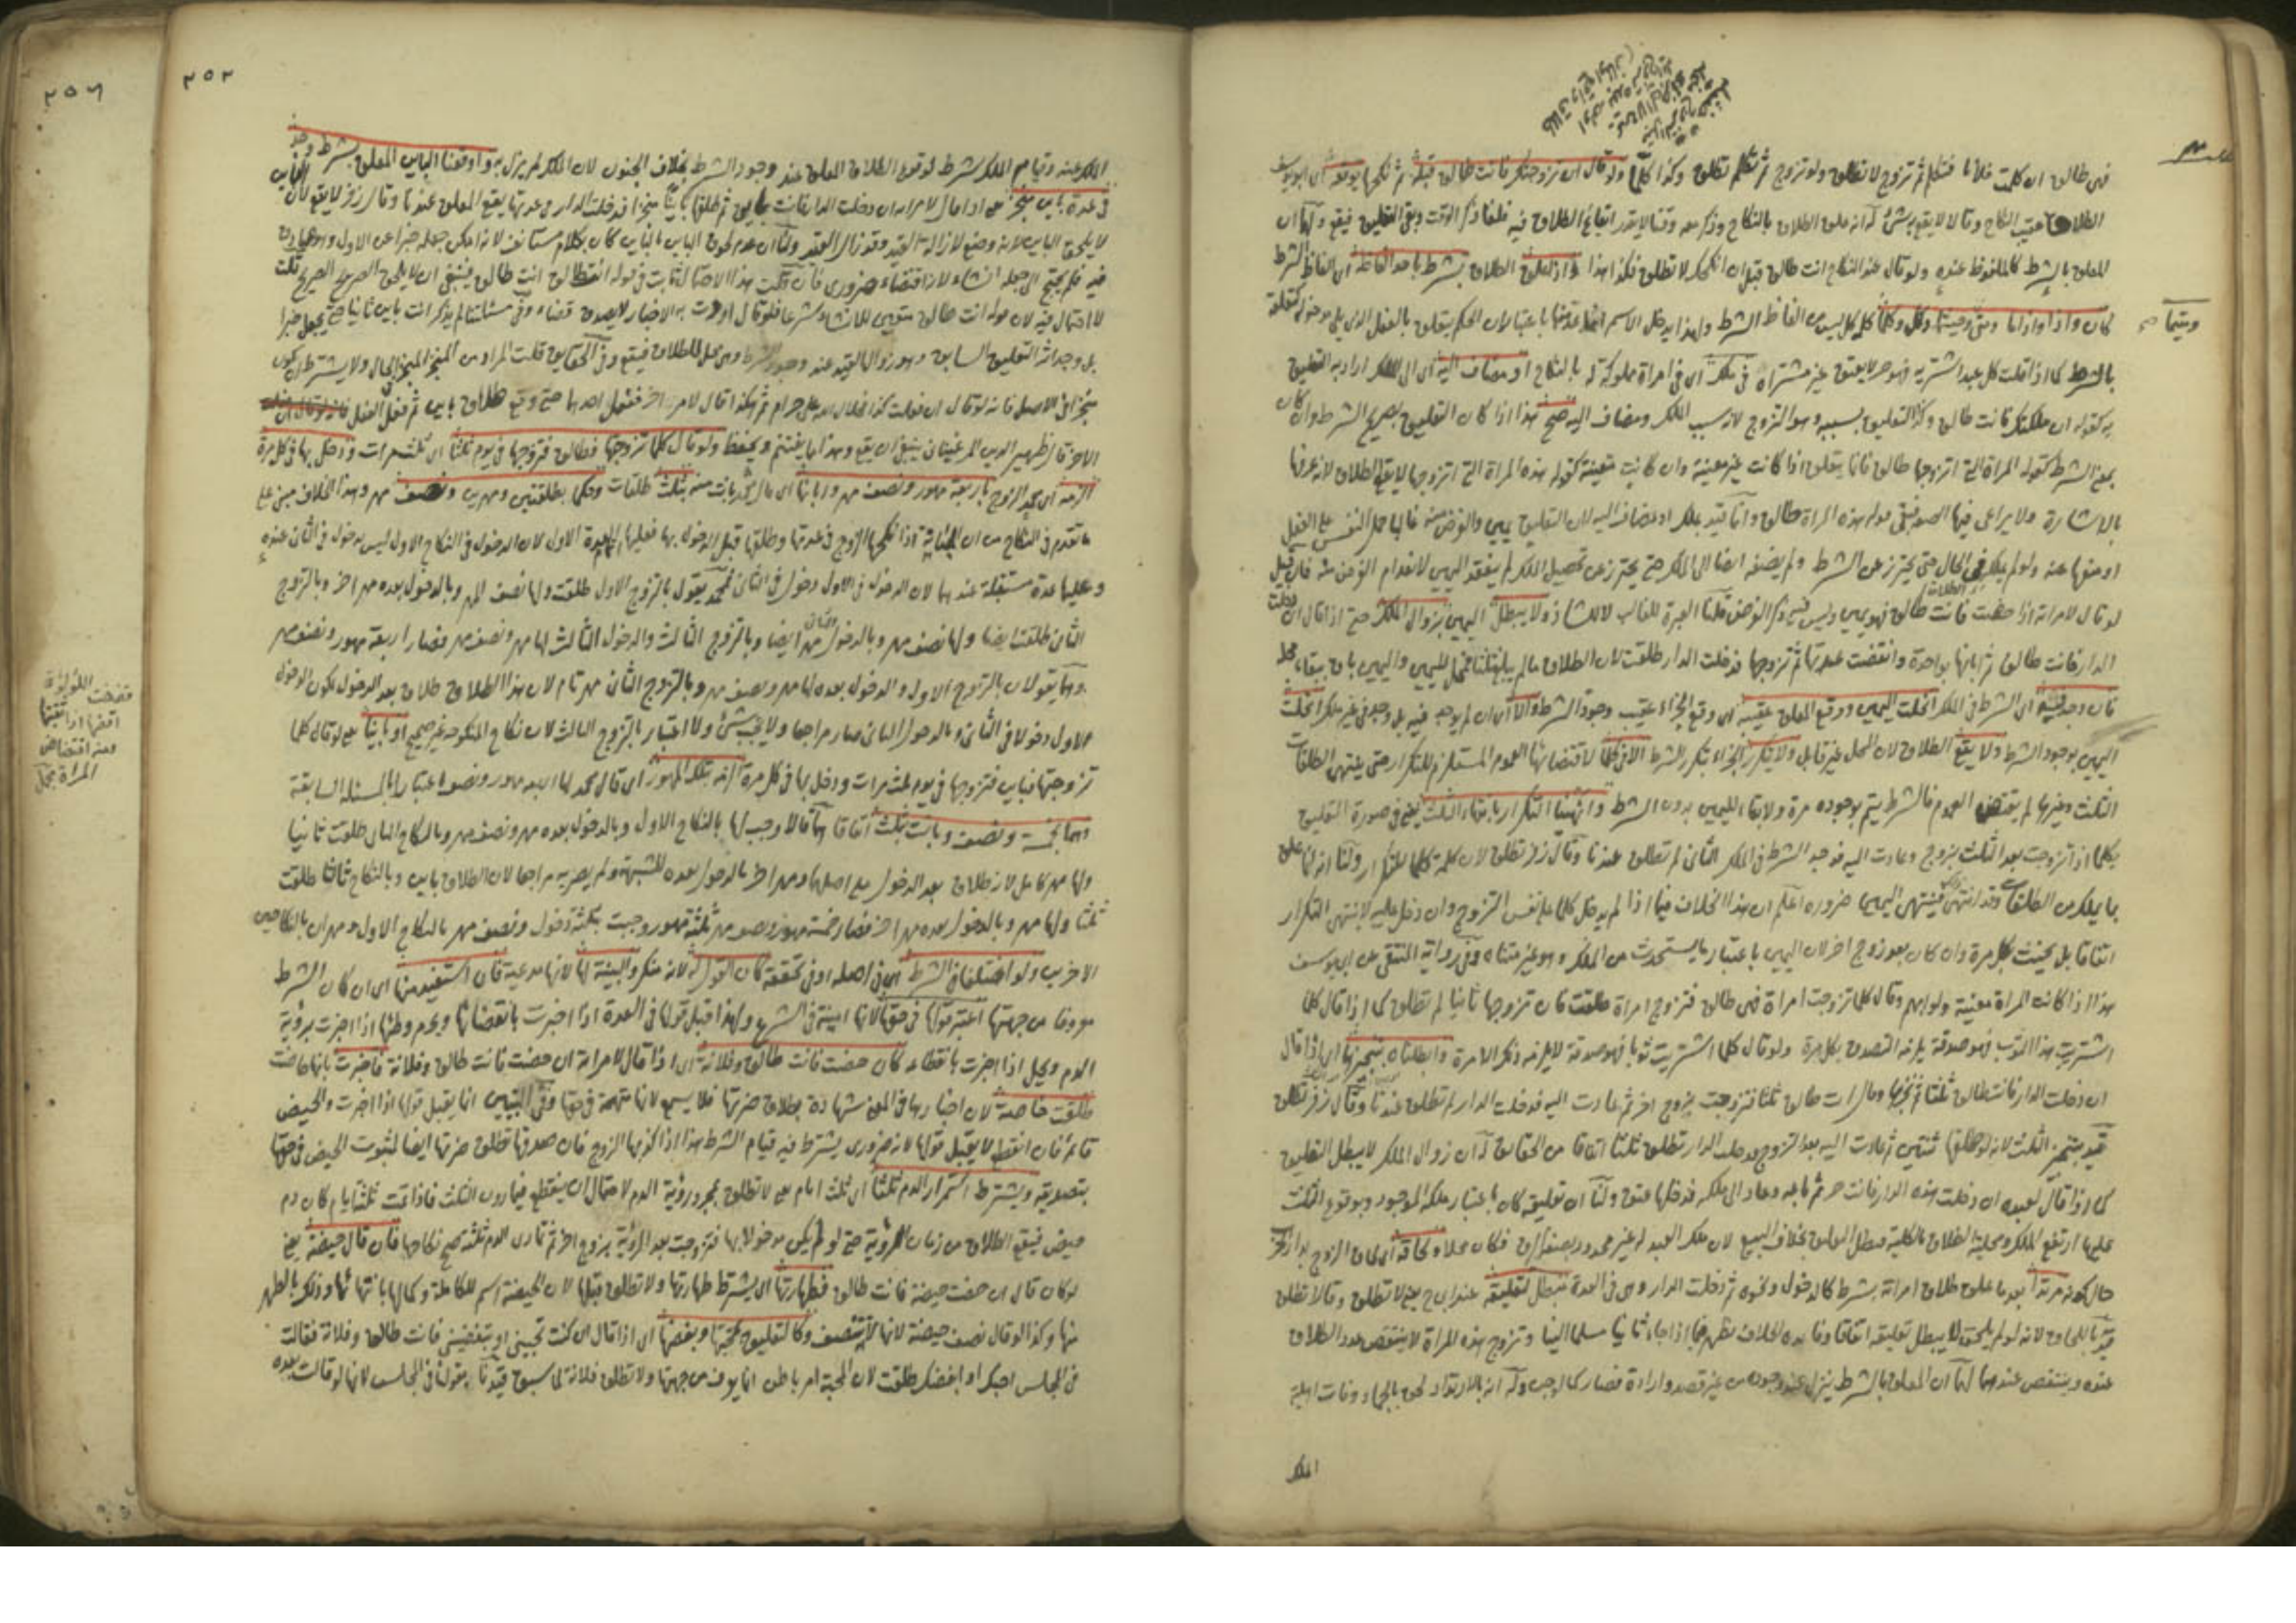 فهى طالق ان كلمت فلانا فتكلم ثم تزوج لا تطلق ولو تزوج ثم تكلم تطلق وكذا كلما ولو قال ان تزوجتك فانت طالق قبله ثم نكحها يوقعه اى ابو يوسف
الطلاق عقيب النكاح وقالا لا يقع شئ له انه علق الطلاق بالنكاح وذكر معه وقتا لا يقدر ايقاع الطلاق فيه فلغا ذكر الوقت وبقى التعليق فيقع ولهما ان
المعلق بالشرط كالملفوظ عنده ولو قال عند النكاح انت طالق قبل ان انكحك لا تطلق فكذا هذا واذا علق الطلاق بشرط باحد الفاظه اى الفاظ الشرط
كان واذا واذاما ومتى ومتيما وكل وكلما كلمة كل ليس من الفاظ الشرط ولهذا يدخل الاسم
ومتيما صح
بالشرط كما اذا قلت كل عبد اشتريه فهو حر لا يعتق غير مشتراه فى ملكه اى فى امراة مملوكة له بالنكاح او مضاف اليه اى الى الملك اراد به التعليق
به كقوله ان ملكتك فانت طالق وكذا التعليق بسببه وهو التزوج لانه سبب الملك ومضاف اليه صح هذا اذا كان التعليق بصريح الشرط وان كان
بمعنى الشرط كقوله المراة التى اتزوجها طالق فانما يتعلق اذا كانت غير معينة وان كانت معينة كقوله هذه المراة التى اتزوجها لا يقع الطلاق لانه عرفها
بالاشارة ولا يراعى فيها الصفة فبقى قوله هذه المراة طالق وانما قيد بملك او مضاف اليه لان التعليق يمين والغرض منه غالبا حمل النفس على الفعل
او منعها عنه ولو لم يكن فى الحال حتى يحترز عن الشرط ولم يضفه ايضا الى الملك حتى يحترز عن تحصيل الملك لم ينعقد اليمين لانعدام الغرض منه فان قيل
لو قال لامراته اذا حضت فانت طالق فهو يمين وليس فيه ذكر الغرض قلنا العبرة للغالب لا للشاذ ولا يبطل اليمين بزوال الملك حتى اذا قال ان دخلت
الدار فانت طالق ثم ابانها بواحدة وانقضت عدتها ثم تزوجها فدخلت الدار طلقت لان الطلاق مالم يبلغ ثلثا محل لليمين واليمين باق ببقاء محله
فان وجد فيه اى الشرط فى الملك انحلت اليمين ووقع المعلق عقيبه اى وقع الجزاء عقيب وجود الشرط والا اى ان لم يوجد فيه بل وجد فى غير ملك انحلت
اليمين بوجود الشرط ولا يقع الطلاق لان المحل غير قابل ولا يتكرر الجزاء بتكرر الشرط الا فى كلما لاقتضائها العموم المستلزم للتكرار حتى ينتهى الطلقات
الثلث وغيرها لم يقتض العموم فالشرط يتم بوجوده مرة ولا بقاء لليمين بدون الشرط وانتهاء التكرار بانتهاء الثلث يعنى فى صورة التعليق
بكلما اذا تزوجت بعد الثلث بزوج وعادت اليه فوجد الشرط فى الملك الثانى لم تطلق عندنا وقال زفر تطلق لان كلمة كلما للتكرار ولنا انه انما علق
بما يملك من الطلقات وقد انتهى فينتهى اليمين ضرورة اعلم ان هذا الخلاف فيما اذا لم يدخل كلما على نفس التزوج وان دخل عليه لا ينتهى التكرار
اتفاقا بل يحنث بكل مرة وان كان بعد زوج اخر لان اليمين باعتبار ما يستحدث من الملك وهو غير متناه وفى رواية المنتقى عن ابى يوسف
هذا اذا كانت المراة معينة ولو ابهم وقال كلما تزوجت امراة فهى طالق فتزوج امراة طلقت فان تزوجها ثانيا لم تطلق كما اذا قال كلما
اشتريت هذا الثوب فهو صدقة يلزمه التصدق بكل مرة ولو قال كلما اشتريت ثوبا فهو صدقة لا يلزمه ذلك الا مرة وابطلناه بتنجيزها اى اذا قال
ان دخلت الدار فانت طالق ثلثا ثم نجزها وقال انت طالق ثلثا فتزوجت بزوج اخر ثم عادت اليه فدخلت الدار لم تطلق عندنا وقال زفر تطلق
قيد بتنجيز الثلث لانه لو طلقها ثنتين ثم عادت اليه بعد التزوج فدخلت الدار تطلق ثلثا اتفاقا من الحقائق له ان زوال الملك لا يبطل التعليق
كما اذا قال لعبده ان دخلت هذه الدار فانت حر ثم باعه وعاد الى ملكه فدخلها عتق ولنا ان تعليقه كان باعتبار ملكه الموجود وبوقوع الثلث
عليها ارتفع الملك ومحلية الطلاق بالكلية فبطل المعلق بخلاف البيع لان ملك العبد له غير محدود فكان محلا ولحاقه اى لحاق الزوج بدار الحرب
حال كونه مرتدا بعد ما علق طلاق امراته بشرط كالدخول ونحوه ثم دخلت الدار وهى فى العدة مبطل لتعليقه عند ابى ح يعنى لا تطلق وقالا تطلق
قيد باللحاق لانه لو لم يلحق لا يبطل تعليقه اتفاقا وفائدة الخلاف تظهر فيما اذا جاء ثانيا مسلما الينا وتزوج هذه المراة لا ينتقص عدد الطلاق
عنده وينتقص عندهما لهما ان المعلق بالشرط ينزل عند وجوده من غير قصد وارادة فصار كالموجب وله انه بالارتداد لحق بالجماد وفات اهلية
الملك
٢٥٢
الملك عنه وقيام الملك شرط لوقوع الطلاق المعلق عند وجود الشرط بخلاف الجنون لان الملك لم يزل به واوقعنا الباين المعلق بشرط وجد
فى عدة باين منجز يعنى اذا قال لامراته ان دخلت الدار فانت باين ثم طلقها باينا منجزا فدخلت الدار فى عدتها يقع المعلق عندنا وقال زفر لا يقع لان الباين
لا يلحق الباين لانه وضع لازالة القيد وقد زال القيد ولنا ان عدم لحوق الباين بالباين كان بكلام مستانف لانه امكن جعله خبرا عن الاول وهو صادق
فيه فلم يحتج الى جعله انشاء لانه اقتضاء ضرورى فان قلت هذا الاحتمال ثابت فى قوله انت طالق انت طالق فينبغى ان لا يلحق الصريح الصريح قلت
لا احتمال فيه لان قوله انت طالق متعين للانشاء شرعا فلو قال اردت به الاخبار لا يصدق قضاء وفى مسئلتنا لم يذكر انت باين ثانيا حتى يجعل خبرا
بل وجد اثر التعليق السابق وهو زوال القيد عند وجود الشرط وهى محل للطلاق فيقع وفى الحقائق قلت المراد من المنجز المنجز فى الحال ولا يشترط ان يكون
منجزا فى الاصل فانه لو قال ان فعلت كذا فحلال الله على حرام ثم هكذا قال لامر اخر ففعل احدهما حتى وقع طلاق باين ثم فعل الفعل
الاخر قال ظهير الدين المرغينانى ينبغى ان يقع وهذا مما يغتنم ويحفظ ولو قال كلما تزوجتها فطالق فتزوجها فى يوم ثلثا اى ثلث مرات ودخل بها فى كل مرة
الزمه اى محمد الزوج باربعة مهور ونصف مهر وابانها اى قال محمد بانت منه بثلث طلقات وحكما بطلقتين ومهرين ونصف مهر وهذا الخلاف مبنى على
ما تقدم فى النكاح من ان المبانة اذا نكحها الزوج فى عدتها وطلقها قبل الدخول بها فعليها العدة الاول لان الدخول فى النكاح الاول ليس بدخول فى الثانى عنده
وعليها عدة مستقبلة عندهما لان الدخول فى الاول دخول فى الثانى فمحمد يقول بالتزوج الاول طلقت ولها نصف المهر وبالدخول بعده مهر اخر وبالتزوج
الثانى طلقت ايضا ولها نصف مهر وبالدخول الثانى مهر ايضا وبالتزوج الثالث والدخول الثالث لها مهر ونصف مهر فصار اربعة مهور ونصف مهر
وهما يقولان بالتزوج الاول والدخول بعده لها مهر ونصف مهر وبالتزوج الثانى مهر تام لان هذا الطلاق طلاق بعد الدخول لكون الدخول
الاول دخولا فى الثانى وبالدخول الثانى صار مراجعا ولا يجب شئ ولا اعتبار بالتزوج الثالث لان نكاح المنكوحة غير صحيح او باينا يعنى لو قال كلما
تزوجتها فباين فتزوجها فى يوم ثلث مرات ودخل بها فى كل مرة الزمه بتلك المهور اى قال محمد لها اربعة مهور ونصف اعتبارا بالمسئلة السابقة
وهما بخمسة ونصف وبانت بثلث اتفاقا لهما قالا وجب لها بالنكاح الاول وبالدخول بعده مهر ونصف مهر وبالنكاح الثانى طلقت ثانيا
ولها مهر كامل لانه طلاق بعد الدخول على اصلهما ومهر اخر بالدخول بعده للشبهة ولم يصر به مراجعا لان الطلاق باين وبالنكاح ثالثا طلقت
ثلثا ولها مهر وبالدخول بعده مهر اخر فصار خمسة مهور ونصف مهر ثلثة مهور وجبت بثلثة دخول ونصف مهر بالنكاح الاول ومهران بالنكاحين
الاخرين ولو اختلفا فى الشرط اى فى اصله او فى تحققه كان القول له لانه منكر والبينة لها لانها مدعية فان استفيد منها اى ان كان الشرط
معروفا من جهتها اعتبر قولها فى حقها لانها امينة فى الشرع ولهذا قبل قولها فى العدة اذا اخبرت بانقضائها ويحرم وطئها اذا اخبرت برؤية
الدم ويحل اذا اخبرت بانقطاعه كان حضت فانت طالق وفلانة اى اذا قال لامراته ان حضت فانت طالق وفلانة فاخبرت بانها حاضت
طلقت خاصة لان اخبارها فى المعنى شهادة بطلاق ضرتها فلا يسمع لانها متهمة فى حقها وفى التبيين انما يقبل قولها اذا اخبرت والحيض
قائم فان انقطع لا يقبل قولها لانه ضرورى يشترط فيه قيام الشرط هذا اذا كذبها الزوج فان صدقها تطلق ضرتها ايضا لثبوت الحيض فى حقها
بتصديقه ويشترط استمرار الدم ثلثا اى ثلث ايام يعنى لا تطلق بمجرد رؤية الدم لاحتمال ان ينقطع فيما دون الثلث فاذا تمت ثلثة ايام كان دم
حيض فيقع الطلاق من زمان الرؤية حتى لو لم يكن مدخولا بها فتزوجت بعد الرؤية بزوج اخر ثم تمادى الدم ثلثة صح نكاحها فان قال حيضة يعنى
لو كان قال ان حضت حيضة فانت طالق فطهارتها اى يشترط طهارتها ولا تطلق قبلها لان الحيضة اسم للكاملة وكمالها بانتهائها وذلك بالطهر
منها وكذا لو قال نصف حيضة لانها لا تتنصف وكالتعليق بمحبتها وبغضها اى اذا قال ان كنت تحبينى او تبغضينى فانت طالق وفلانة فقالت
فى المجلس احبك او ابغضك طلقت لان المحبة امر باطن انما يعرف من جهتها ولا تطلق فلانة لما سبق قيدنا بقولنا فى المجلس لانها لو قالت بعده
٢٥٦
فضضت اللؤلؤة
اقضها اذا ثقبتها
ومنه اقتضاض
المراة